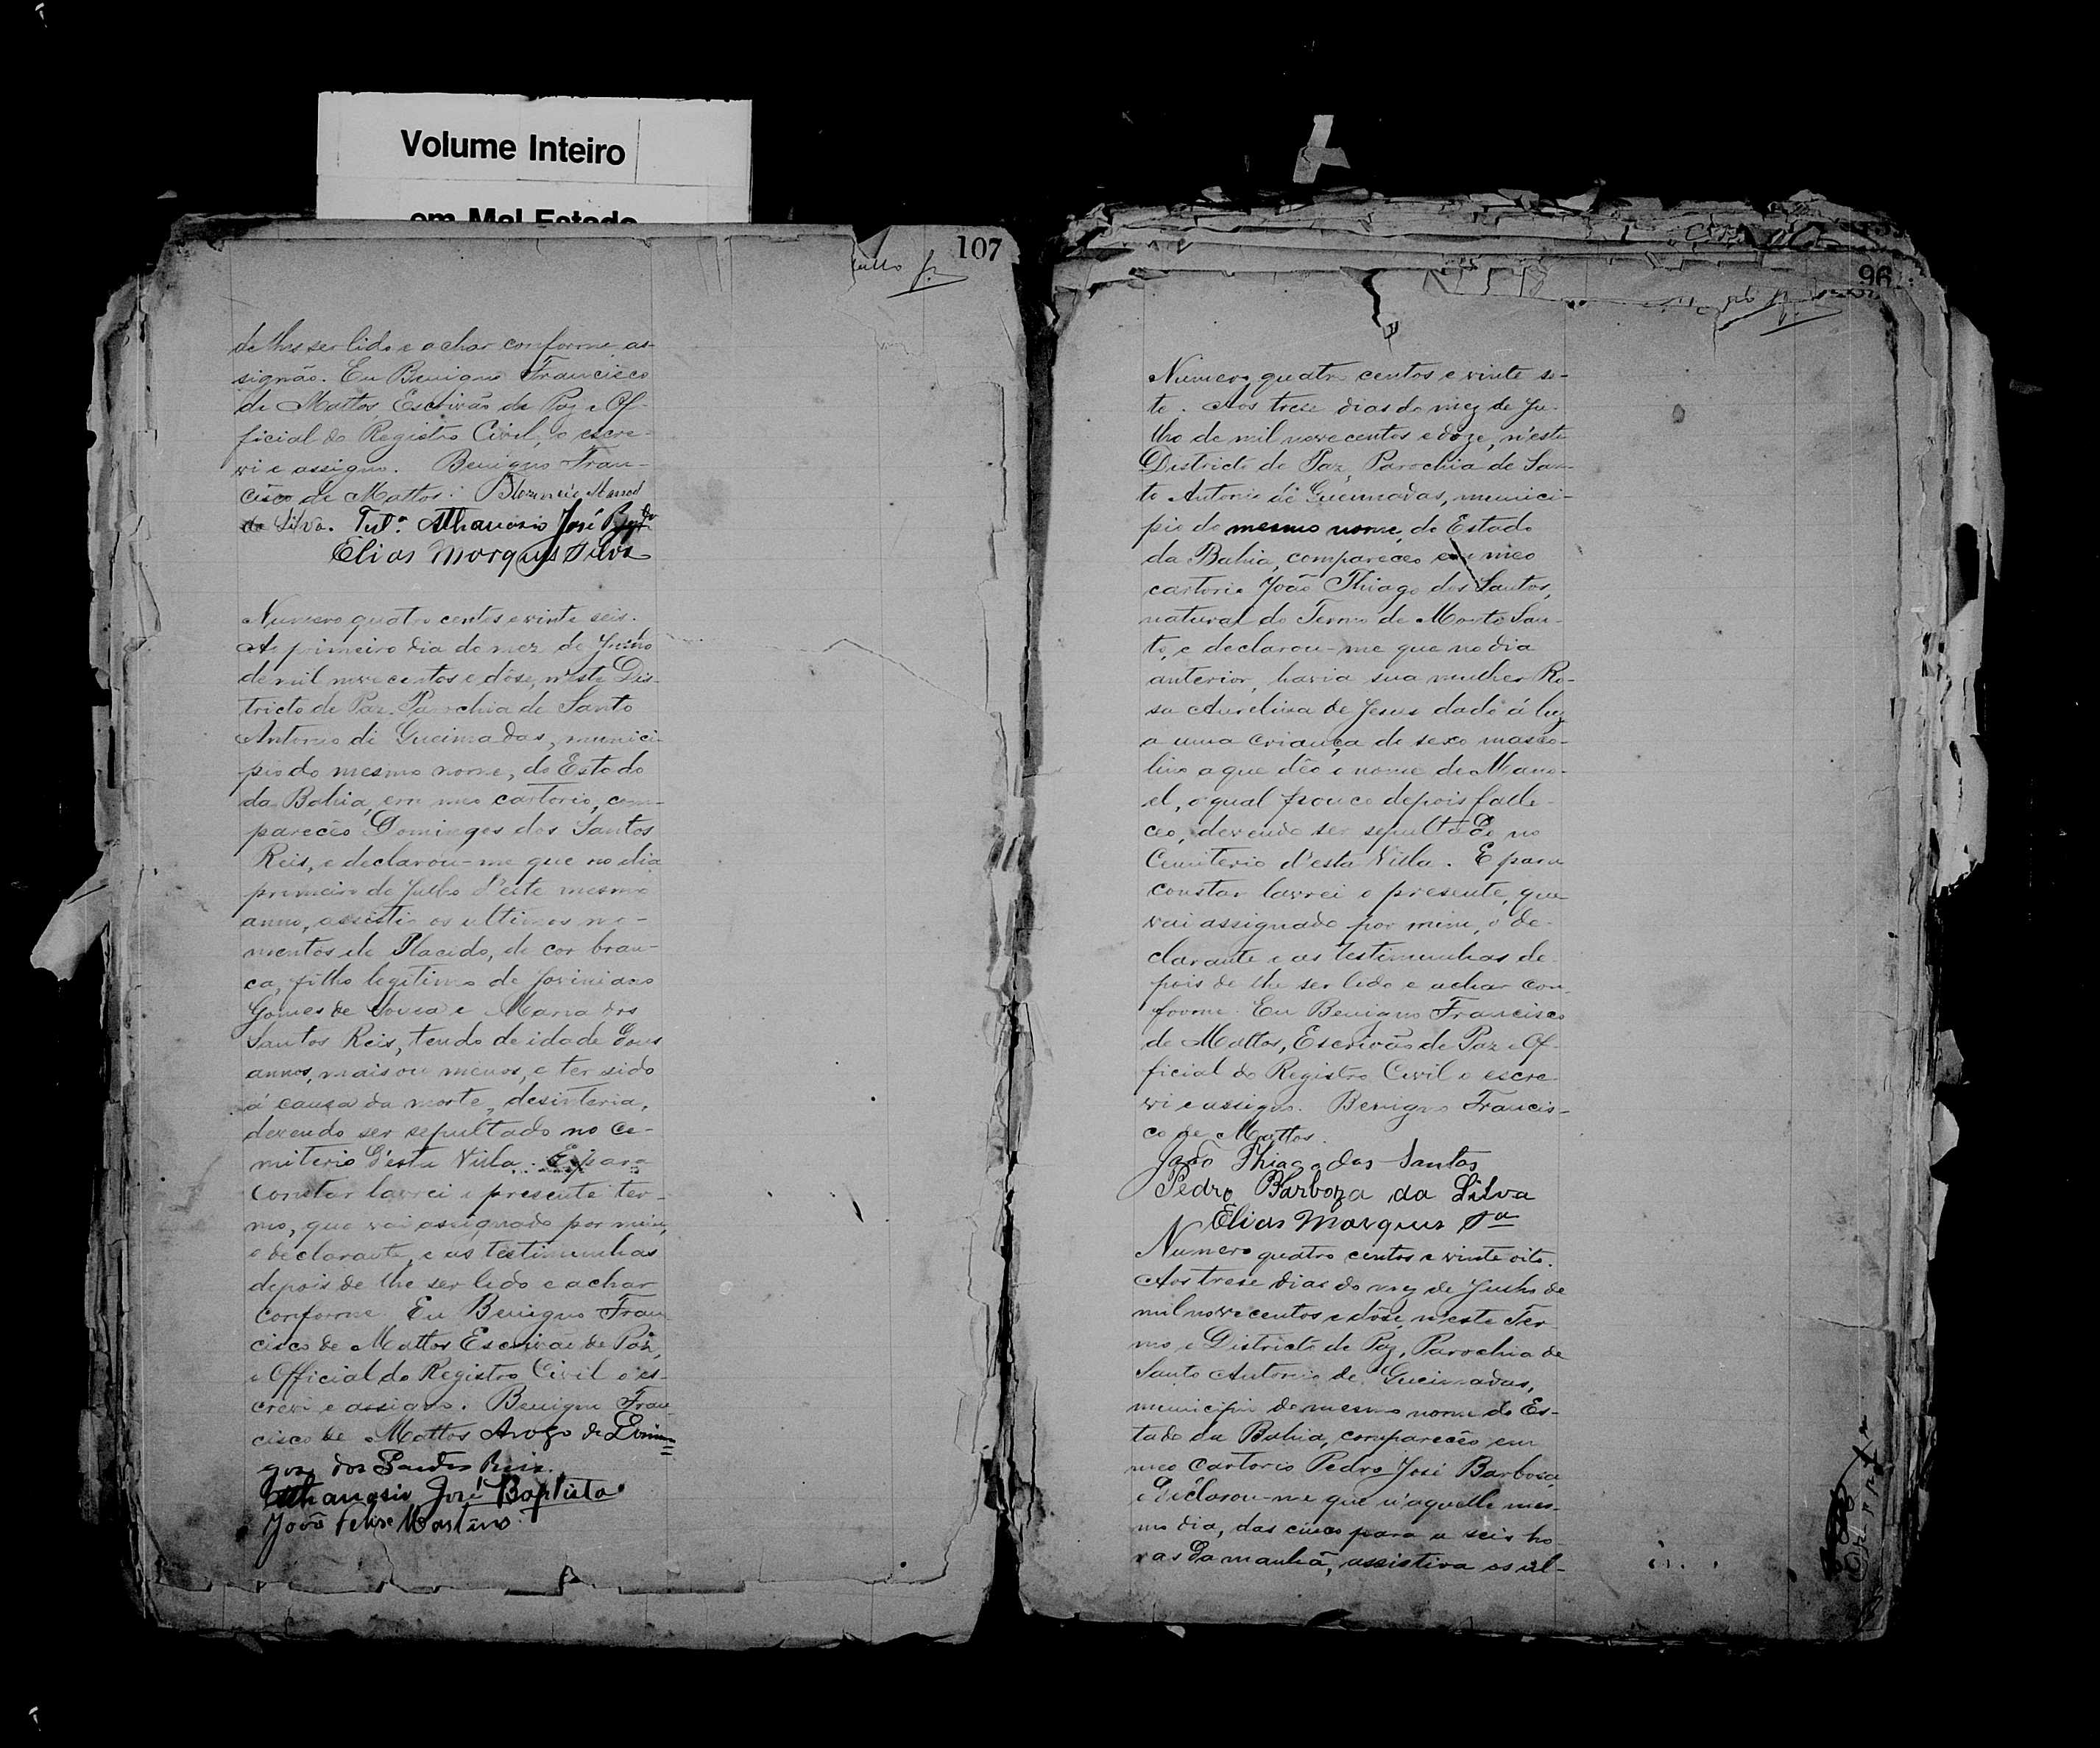 Volume Inteiro
em Mal Estado
107
de lhes ser lido e achar conforme as-
signão. Eu Benigno Francisco
de Mattos, Escrivão de Paz e Of-
ficial do Registro Civil, o escre-
vi e assigno. Benigno Fran-
cisco de Mattos.
da Silva. Athanasio José
Elias Marques Silva
Numero quatro centos e vinte seis.
Ao primeiro dia do mez de
de mil nove centos e dôse, n'este Dis-
tricto de Paz, Parochia de Santo
Antonio de Gueimadas, munici-
pio do mesmo nome, do Estado
da Bahia, em meo cartorio, com-
pareceo Domingos dos Santos
Reis, e declarou-me que no dia
primeiro de Julho d'este mesmo
anno, assisti os ultimos mo-
mentos de Placido, de cor bran-
ca, filho legitimo de Joviniano
Gomes de Sousa e Maria dos
Santos Reis, tendo de idade dous
annos, mais ou menos, e ter sido
a causa da morte, desinteria,
devendo ser sepultado no Ce-
miterio d'esta Villa. E para
constar lavrei o presente ter-
mo, que vai assignado por mim,
o declarante, e as testimunhas
depois de lhe ser lido e achar
conforme. Eu Benigno Fran
cisco de Mattos Escrivão de Paz,
e Official do Registro Civil o es-
crevi e assigno. Benigno Fran
cisco de Mattos Arogo de Domin=
gos dos Santos Reis.
Athanasio José Baptista
João Felix Martins
96
Numero quatro centos e vinte se-
te. Aos trese dias do mez de Ju-
lho de mil nove centos e doze, n'este
Districto de Paz, Parochia de San-
to Antonio de Gueimadas, munici-
pio do mesmo nome, do Estado
da Bahia, compareceo em meo
cartorio João Thiago dos Santos,
natural do Termo de Monte San-
to, e declarou-me que no dia
anterior, havia sua mulher Ro-
sa Aurelina de Jesus dado á luz
a uma criança de sexo mascu-
lino a que dêo o nome de Mano-
el, o qual pouco depois falle-
ceo, devendo ser sepultado no
Cemiterio d'esta Villa. E para
constar lavrei o presente, que
vai assignado por mim, o de-
clarante e as testimunhas de-
pois de lhe ser lido e achar con-
forme. Eu Benigno Francisco
de Mattos, Escrivão de Paz e Of-
ficial do Registro Civil o escre-
vi e assigno. Benigno Francis-
co de Mattos.
João Thiago dos Santos
Pedro Barboza da Silva
Elias Marques Sa
Numero quatro centos e vinte oito.
Aos trese dias do mez de Julho de
mil nove centos e dôse, n'este Ter-
mo e Districto de Paz, Parochia de
Santo Antonio de Gueimadas,
municipio do mesmo nome do Es-
tado da Bahia, compareceo em
meo Cartorio Pedro José Barbosa,
e declarou-me que n'aquelle mes-
mo dia, das cinco para a seis ho
ras da manhã, assistiva os ul-